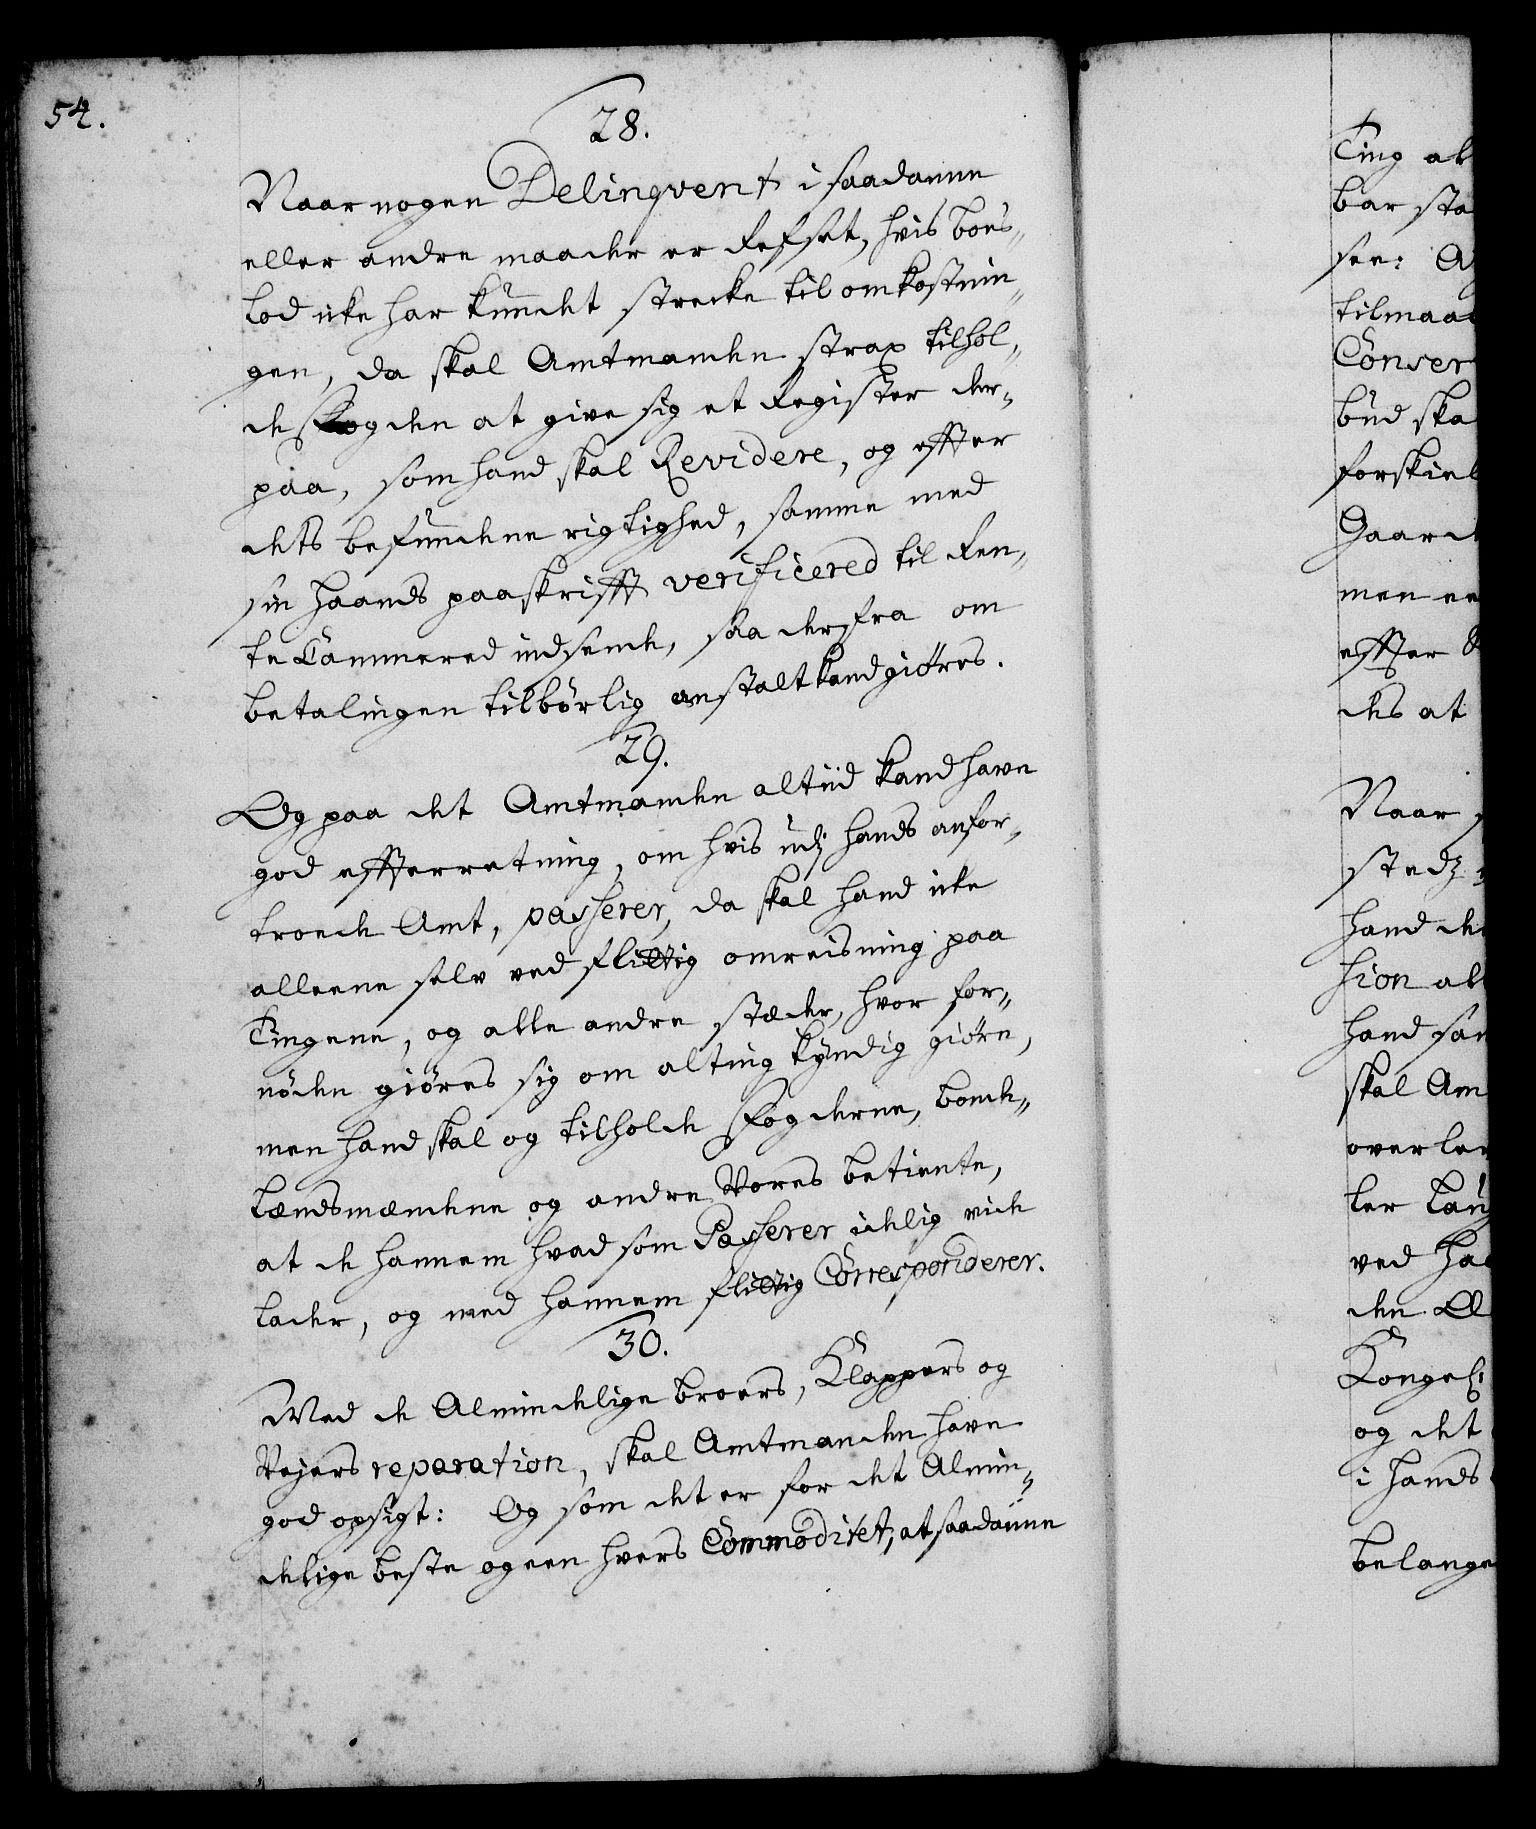 54.
28.
Naar nogen Delinqvent i saadanne
eller andre maader er Refset, hvis boes-
lod icke har kundet strecke til omkostnin-
gen, da skal Amtmanden strax tilhol-
de Fogden at give sig et Register der-
paa, som hand skal Revidere, og effter
dets befundene rigtighed, samme med
sin haands paaskrifft verificered til Ren-
te Cammered indsende, saa derfra om
betalingen tilbørlig anstalt kand giøres.
29.
Og paa det Amtmanden altiid kand have
god effterretning, om hvis udj hands anfor-
troede Amt, passerer, da skal hand icke
alleene selv ved flittig omreisning paa
Tingene, og alle andre stæder, hvor for-
nøden giøres sig om alting kyndig giøre,
men hand skal og tilholde Fogderne, bonde-
lændsmændene og andre Vores betiente,
at de hannem hvad som Passerer idelig vide
lader, og med hannem flittig Corresponderer.
30.
Med de Almindelige broers, Klappers og
Vejers reparation, skal Amtmanden have
god opsigt: Og som det er for det Almin-
delige beste og een hvers Commoditet, at saadanne
Ting at
bar sta
see:
tilmaa
Conser
bud ska
forskiel
Gaard
men ee
effter
des at
Naar
stedz
hand de
sion al
hand sam
skal Am
over le
ler lau
ved ha
den
Kongel:
og det
i hands
belange